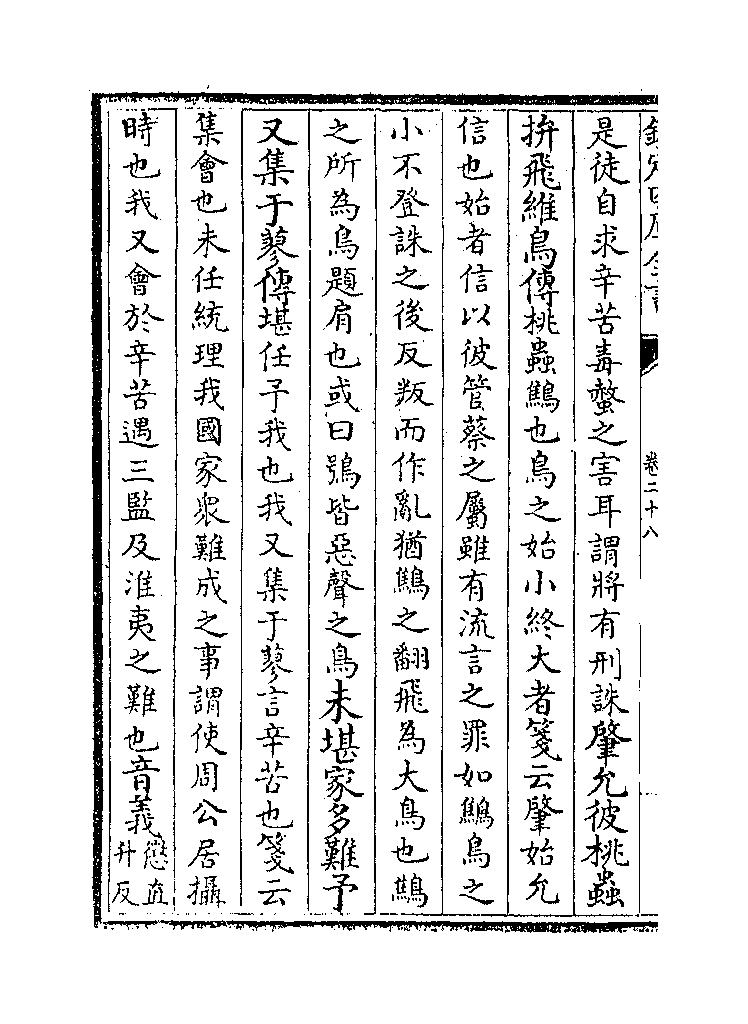 欽定四庫全書
卷二十八
是徒自求辛苦毒螫之害耳謂將有刑誅肇允彼桃蟲
拚飛維鳥傳桃蟲鷦也鳥之始小終大者箋云肇始允
信也始者信以彼管蔡之屬雖有流言之罪如鷦鳥之
小不登誅之後反叛而作亂猶鷦之翻飛為大鳥也鷦
之所為鳥題肩也或曰鴞皆惡聲之鳥未堪家多難予
又集于蓼傳堪任予我也我又集于蓼言辛苦也箋云
集會也未任統理我國家眾難成之事謂使周公居攝
時也我又會於辛苦遇三監及淮夷之難也音義懲直
升反